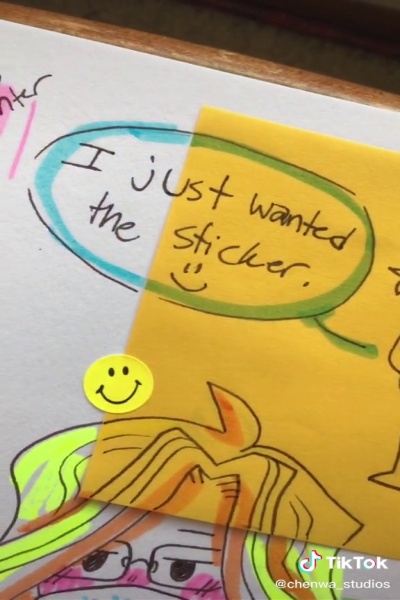 I just wanted
the sticker.
TikTok
@chenwa_studios